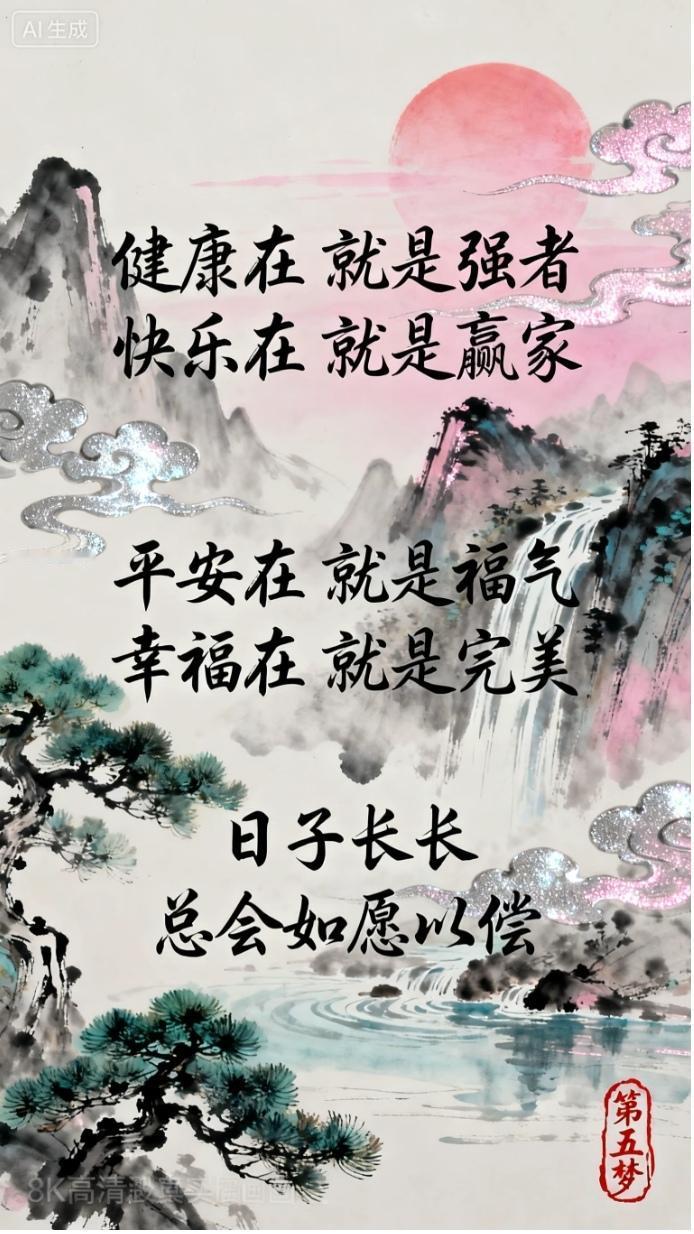 AI生成
健康在 就是强者
快乐在 就是赢家
平安在 就是福气
幸福在 就是完美
日子长长
总会如愿以偿
第五梦
8K高清